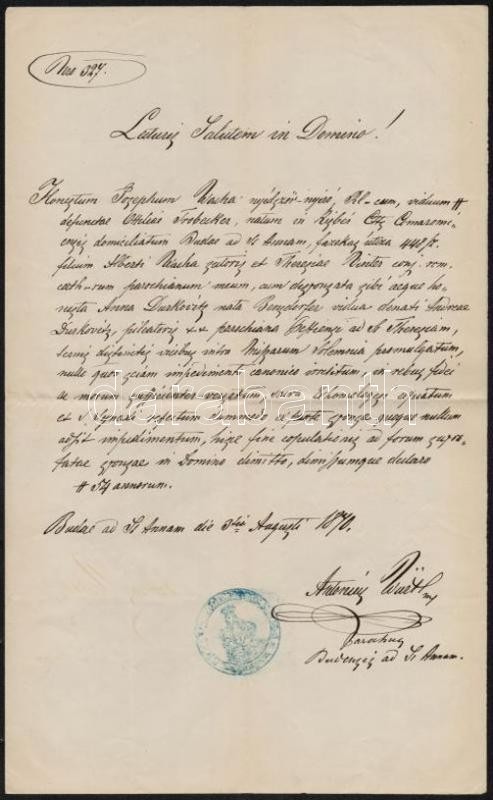 Nro 327.
Lecturis Salutem in Domino!
Honestum Josephum Wacha nyídzsir-nyiró, R-cum, viduum #
defunctae Ottiliae Trobecker, natum in Kisbér Cttu Comaromi-
ensi domiciliatum Budae ad St Annam, fazekas utcza 448/2.
filium Alberti Wacha sutoris et Theresiae Winter conj. rom.
cath-rum parochianum meum, cum desponsata sibi aeque ho-
nesta Anna Durkovits nata Benzdorfer vidua denati Andreae
Durkovits, pileatoris x x parochiana Pestiensi ad St Theresiam,
ternis distinctis vicibus intra Missarum Solemnia promulgatum,
nullo quod sciam impedimento canonico irretitum, in rebus fidei
et morum sufficienter versatum, sacra exhomologesi expiatum
et S. Synaxi refectum dummodo ex parte sponsae quoque nullum
adsit impedimentum, hisce fine copulationis ad forum supra-
fatae sponsae in Domino dimitto, dimissumque declaro
# 54 annorum.
Budae ad St Annam die 3tia Augusti 1870.
Antonius Würtl mp
Parochus
Budensis ad St Annam.
darabanth